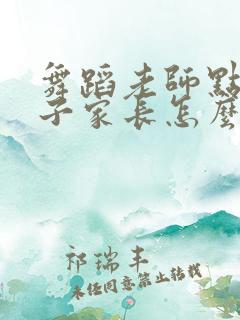 舞蹈老師點
子家長怎麼
祁瑞丰
未经同意禁止转载